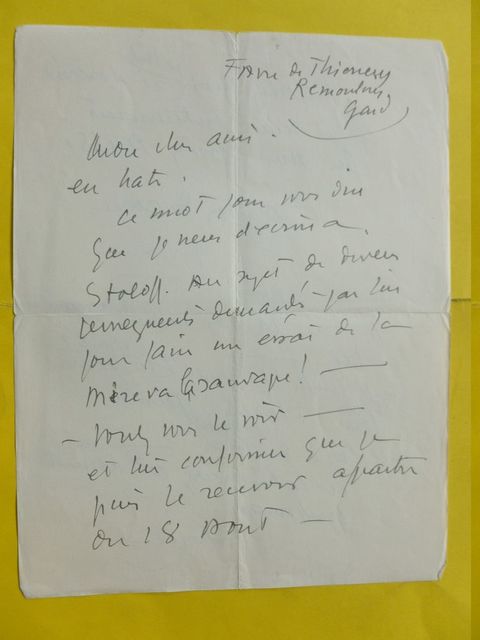 Favre de Thierrens
Remoulins
Gard
Mon cher ami.
en hate.
ce mot pour vous dire
que je viens d'ecrire a
Stoloff. Au sujet de divers
renseignements demandés par lui
pour faire un essai de la
Mireva
- voulez vous le voir —
et lui confirmer que je
puis le recevoir apartir
du 18 Aout —